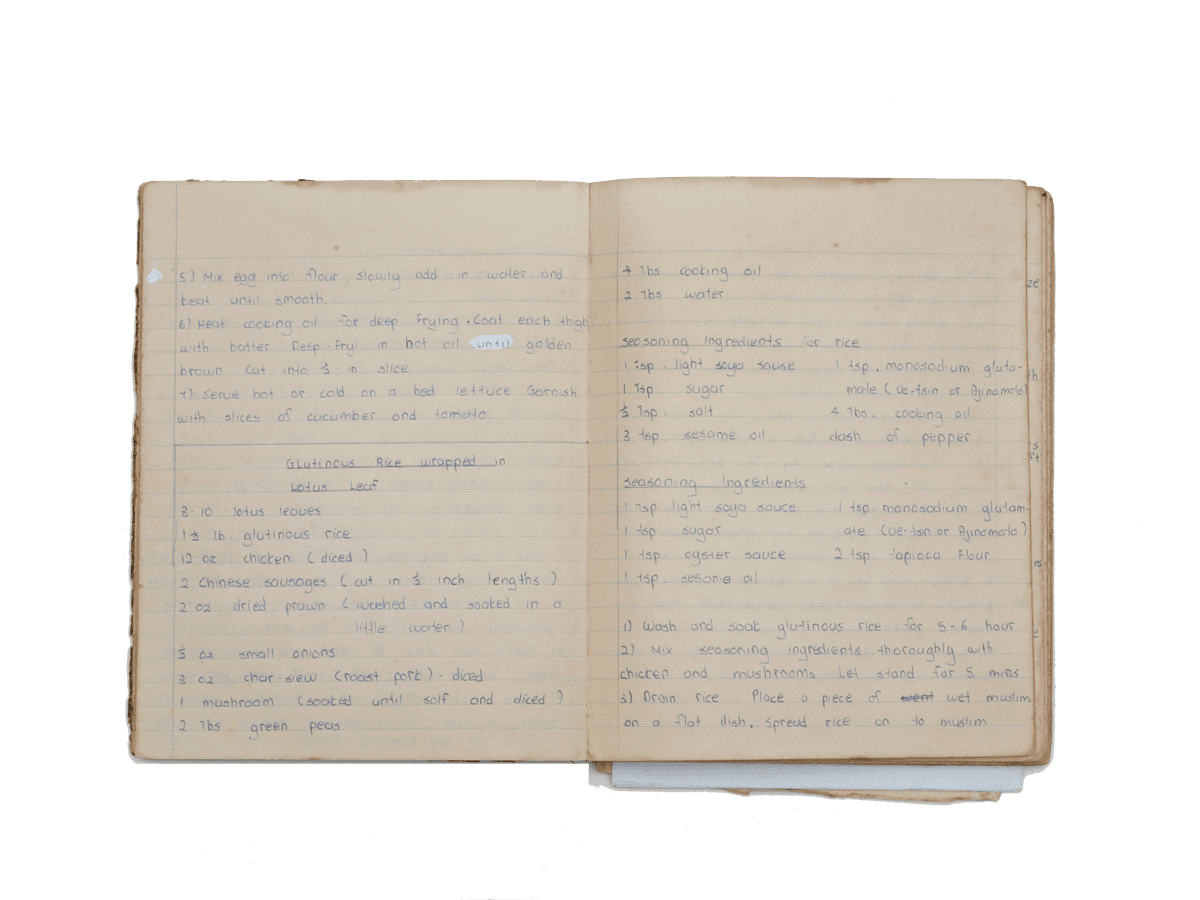 5) Mix egg into flour slowly add in water and
beat until smooth.
6) Heat cooking oil for deep Frying. Coat each thigh
with batter Deep-Fry in hot oil until golden
brown Cut into ½ in slice
7) Serve hot or cold on a bed lettuce Garnish
with slices of cucumber and tomato.
Glutinous Rice wrapped in
Lotus Leaf
8-10 lotus leaves
1½ lb. glutinous rice
12 oz chicken (diced)
2 Chinese sausages (cut in ½ inch lengths)
2 oz dried prawn (washed and soaked in a
little water)
½ oz small onions
3 oz char-siew (roast pork) - diced
1 mushroom (soaked until solf and diced)
2 Tbs green peas
4 Tbs cooking oil
2 Tbs water
Seasoning Ingredients for rice
1 Tsp. light soya sause 1 tsp. monosodium gluta-
1 Tsp. sugar mate (Ve-tsin or Ajinomoto)
½ Tsp. salt 4 Tbs. cooking oil
3 tsp. sesame oil dash of pepper
Seasoning Ingredients
1 Tsp. light soya sauce 1 tsp. monosodium glutam-
1 tsp. sugar ate (Ve-tsin or Ajinomoto)
1 tsp. oyster sauce 2 tsp. Tapioca Flour.
1 tsp. sesame oil
1) Wash and soak glutinous rice for 5-6 hour
2) Mix seasoning ingredients thoroughly with
chicken and mushrooms Let stand for 5 mins
3) Drain rice Place a piece of went wet muslim
on a flat dish. Spread rice on to muslim